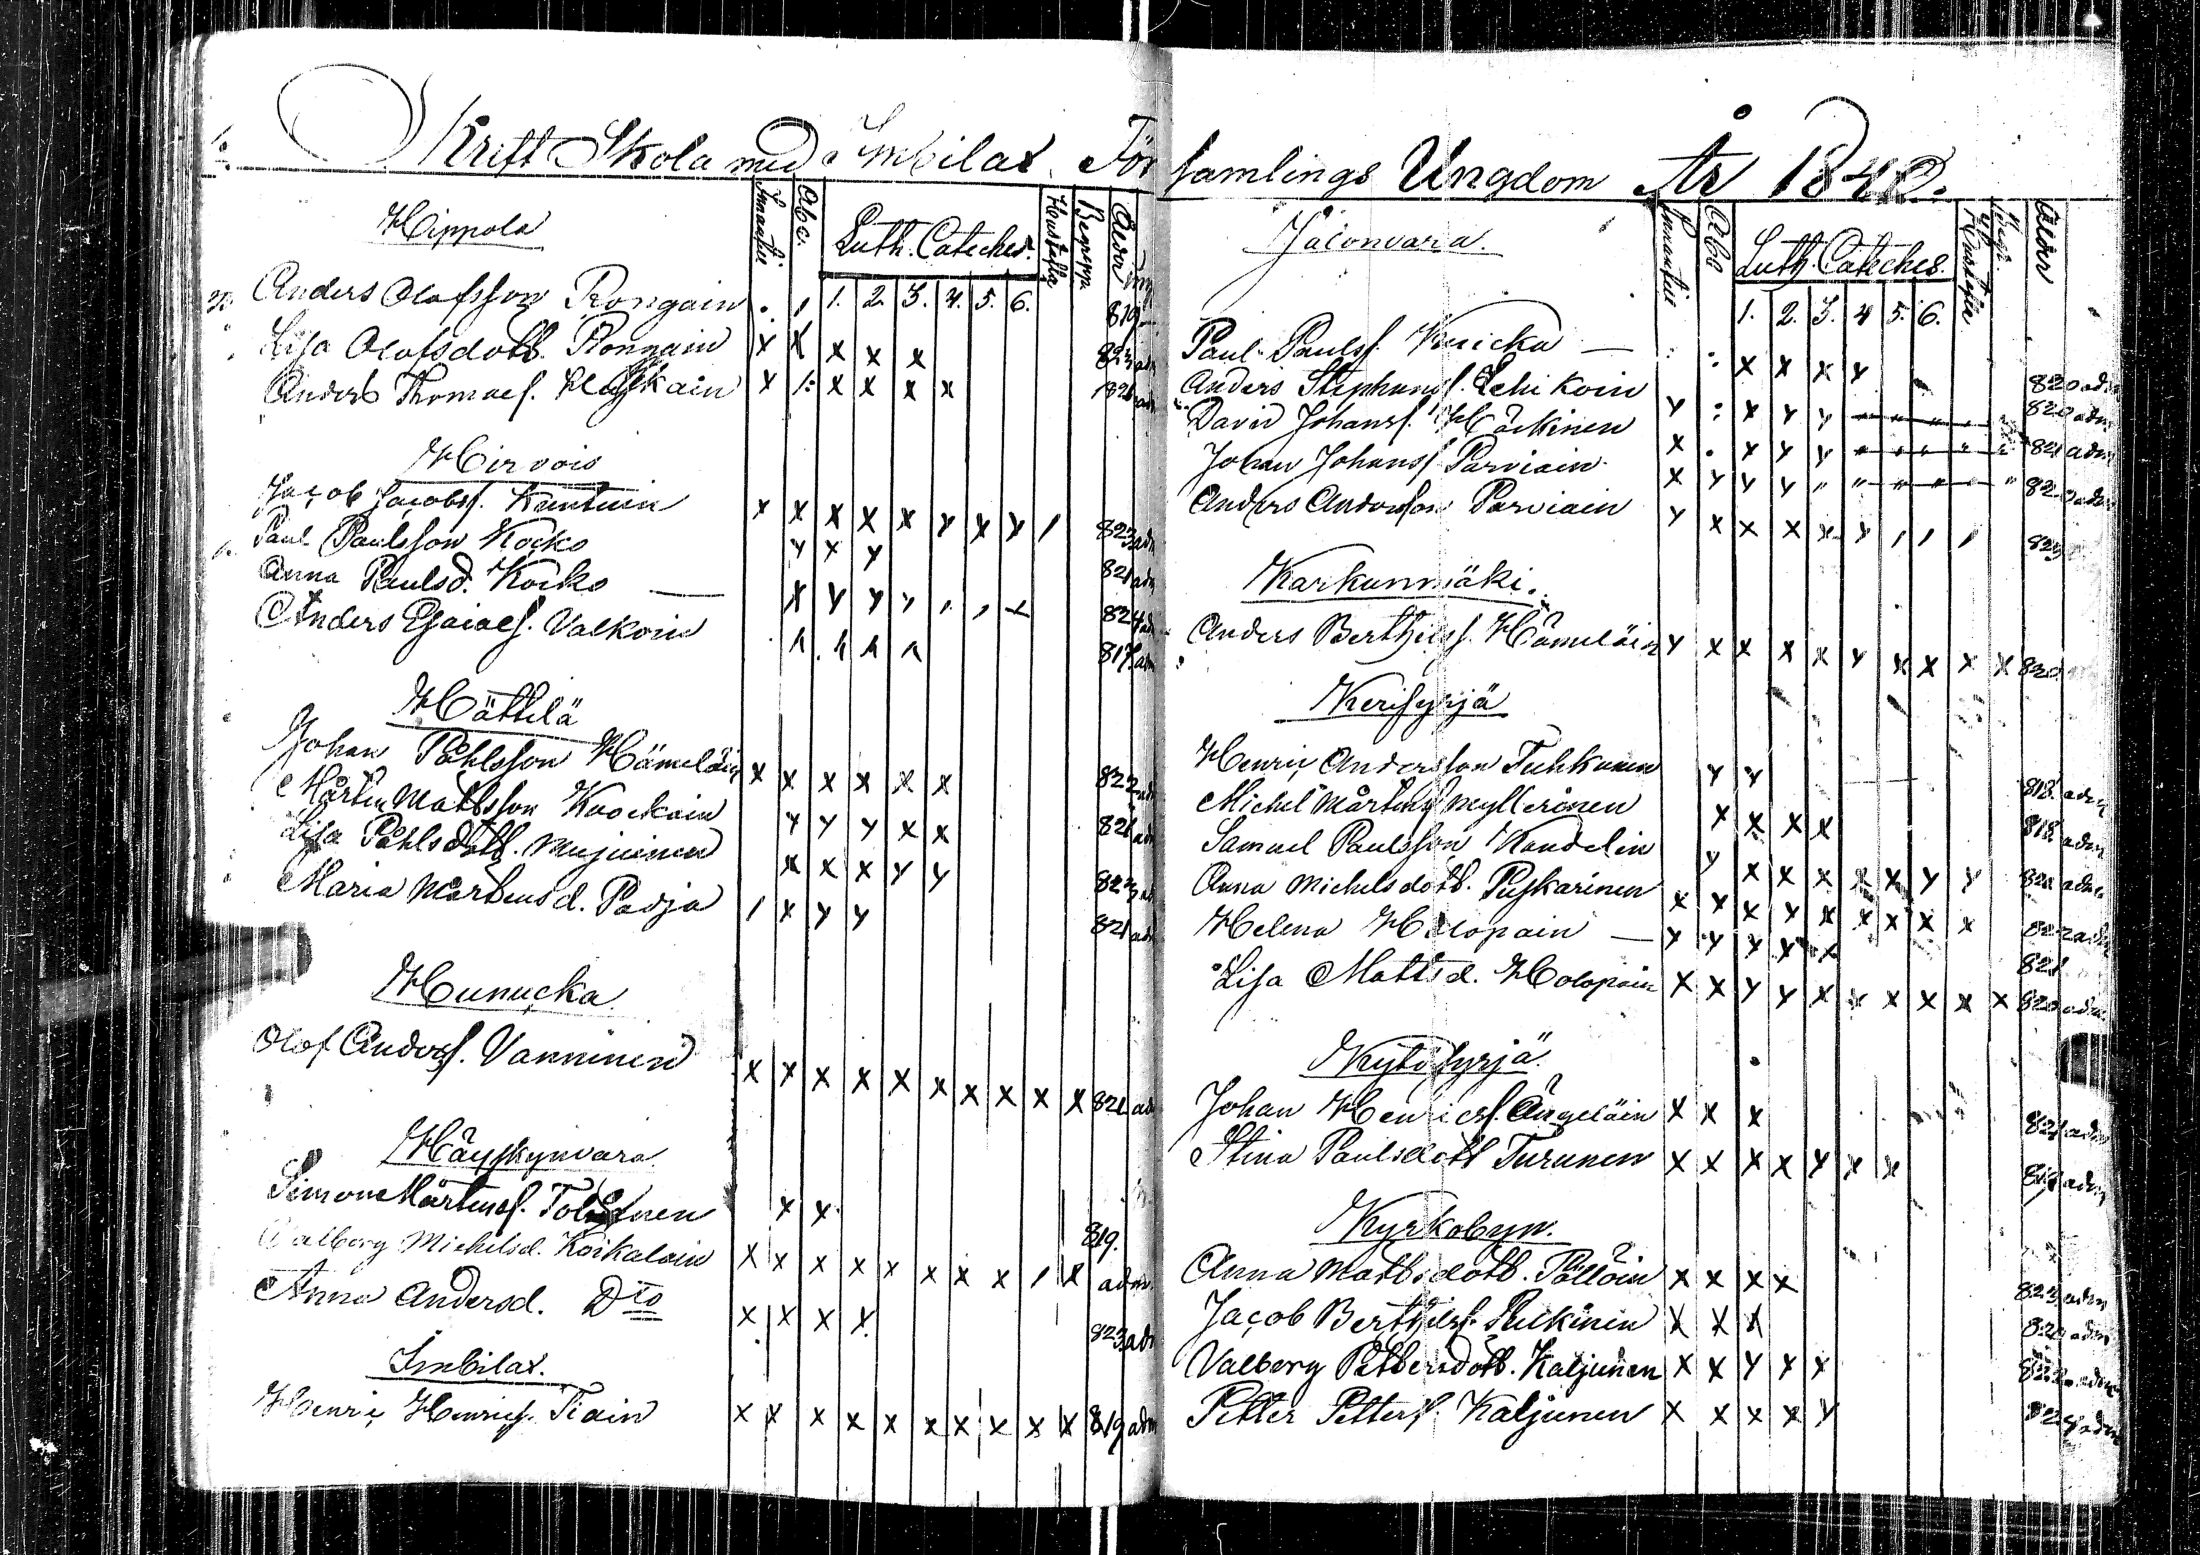 Skrift Skola med Imbilax För samlings Ungdom År 1842.
Innantill Abc. Luth. Cateches. Hustafla Begrepp Ålder
1. 2. 3. 4. 5. 6.
Hippola
Anders Olofsson Rongain 819
Lisa Olofsdott. Ronnain x x x x x 823 adm
Anders Thomaes. x x x x x 821 adm
Hirvois
Jacob Jacobss. x x x x x y x y / 823 adm
Paul Paulsson Kocko y x y 821 adm
Anna Paulsd. Kocko — x y y y 824 adm
Anders Esaiaes. Valkoin 817 adm
Hättilä
Johan Påhlsson Hämeläin x x x x x x 822 adm
Mårten Mattsson Kuockain y y y x x 821 adm
Lisa Påhlsdott. Mujuinen x x x y y 823 adm
Maria Mårtensd. Padja / x y y 821 adm
Hunucka
Olof Anderss. Vanninen x x x x x x x x x x 821 adm
Häyskynvara
Simon Mårtenss. x x 819.
Valborg Michelsd. Koikalain x x x x x x x x / x adm.
Anna Andersd. Dto x x x x 823 adm
Imbilax.
Henric Henricss. Tiain x x x x x x x x x x 819 adm
Innantill Abc Luth. Cateches. Hustafla Ålder
1. 2. 3. 4. 5. 6.
Jalonvara.
Paul Paulss. Kuicka — x x x y 820 adm
Anders Stephanss. Lehikoin y x y y 820 adm
David Johanss. Häckinen x x y y 821 adm
Johan Johanss. Parviain x y y y 820 adm
Anders Andersson Parviain y x x x x y / / / 823
Karkunmäki.
Anders Berthilss. Hämeläin y x x x x y x x x x 820
Kerisyrjä
Henric Andersson Tuhkunen y y 818 adm
Michel Mårtenss. Myllerinen x x x x 818 adm
Samuel Paulsson Kandelin y x x x x x y y 821 adm
Anna Michelsdott. Puskarinen x y x y x x x x x 822 adm
Helena Holopain — y y y x x 821
Lisa Mattsd. Holopain x x y y x x x x x x 820 adm.
Kytösyrjä
Johan Henricss. Ängeläin x x x 824 adm
Stina Paulsdott Turunen x x x x y x x adm
Kyrkobyn.
Anna Mattsdott. Pölläin x x x x 823 adm
Jacob Berthilss. Pulkinin x x x 820 adm
Valborg Pettersdott. Kaljunen x x y y x 822 adm
Petter Petterss. Kaljunen x x x x y 824 adm